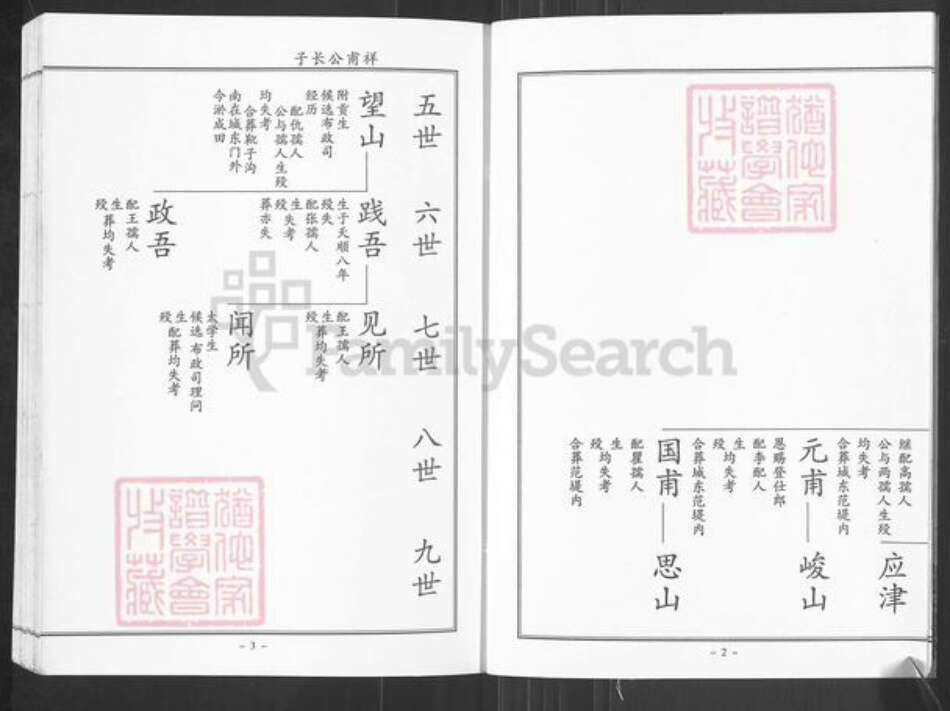 继配高孺人
公与两孺人生殁
均失考
合葬城东范堤内
应津
元甫
峻山
恩赐登仕郎
配李配人
生
殁均失考
合葬城东范堤内
国甫
思山
配瞿孺人
生
殁均失考
合葬范堤内
- 2 -
祥甫公长子
五世
六世
七世
八世
九世
望山
附贡生
候选布政司
经历
配仇孺人
公与孺人生殁
均失考
合葬靴子沟
南在城东门外
今淤成田
践吾
生于天顺八年
殁失
配张孺人
生失考
殁
葬亦失
政吾
配王孺人
生
殁葬均失考
见所
配王孺人
生
殁葬均失考
闻所
太学生
候选布政司理问
生
殁配葬均失考
- 3 -
FamilySearch
猶他家
譜學會
收藏
猶他家
譜學會
收藏